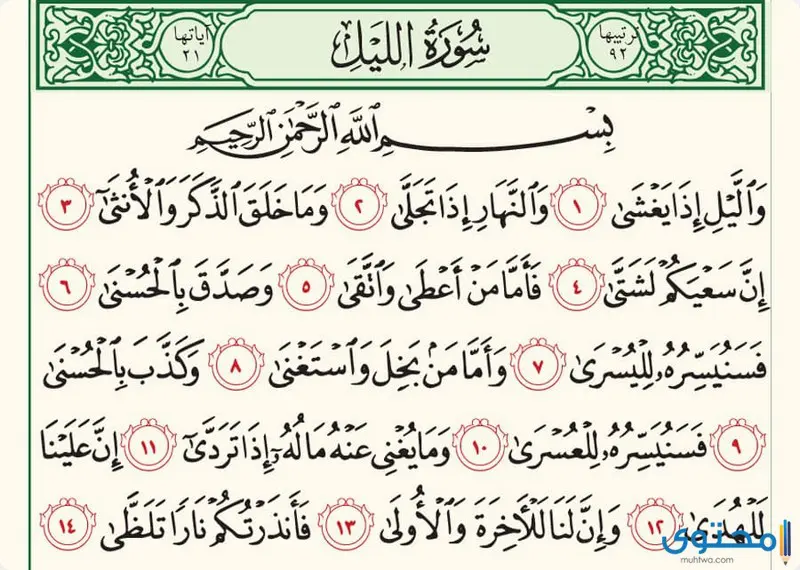 ترتيبها ٩٢ سُورَةُ اللَّيْلِ آياتها ٢١
بِسْمِ ٱللَّهِ ٱلرَّحْمَٰنِ ٱلرَّحِيمِ
وَٱلَّيْلِ إِذَا يَغْشَىٰ ١ وَٱلنَّهَارِ إِذَا تَجَلَّىٰ ٢ وَمَا خَلَقَ ٱلذَّكَرَ وَٱلْأُنثَىٰٓ ٣
إِنَّ سَعْيَكُمْ لَشَتَّىٰ ٤ فَأَمَّا مَنْ أَعْطَىٰ وَٱتَّقَىٰ ٥ وَصَدَّقَ بِٱلْحُسْنَىٰ ٦
فَسَنُيَسِّرُهُۥ لِلْيُسْرَىٰ ٧ وَأَمَّا مَنۢ بَخِلَ وَٱسْتَغْنَىٰ ٨ وَكَذَّبَ بِٱلْحُسْنَىٰ
٩ فَسَنُيَسِّرُهُۥ لِلْعُسْرَىٰ ١٠ وَمَا يُغْنِى عَنْهُ مَالُهُۥٓ إِذَا تَرَدَّىٰٓ ١١ إِنَّ عَلَيْنَا
لَلْهُدَىٰ ١٢ وَإِنَّ لَنَا لَلْءَاخِرَةَ وَٱلْأُولَىٰ ١٣ فَأَنذَرْتُكُمْ نَارًا تَلَظَّىٰ ١٤
محتوى
muhtwa.com